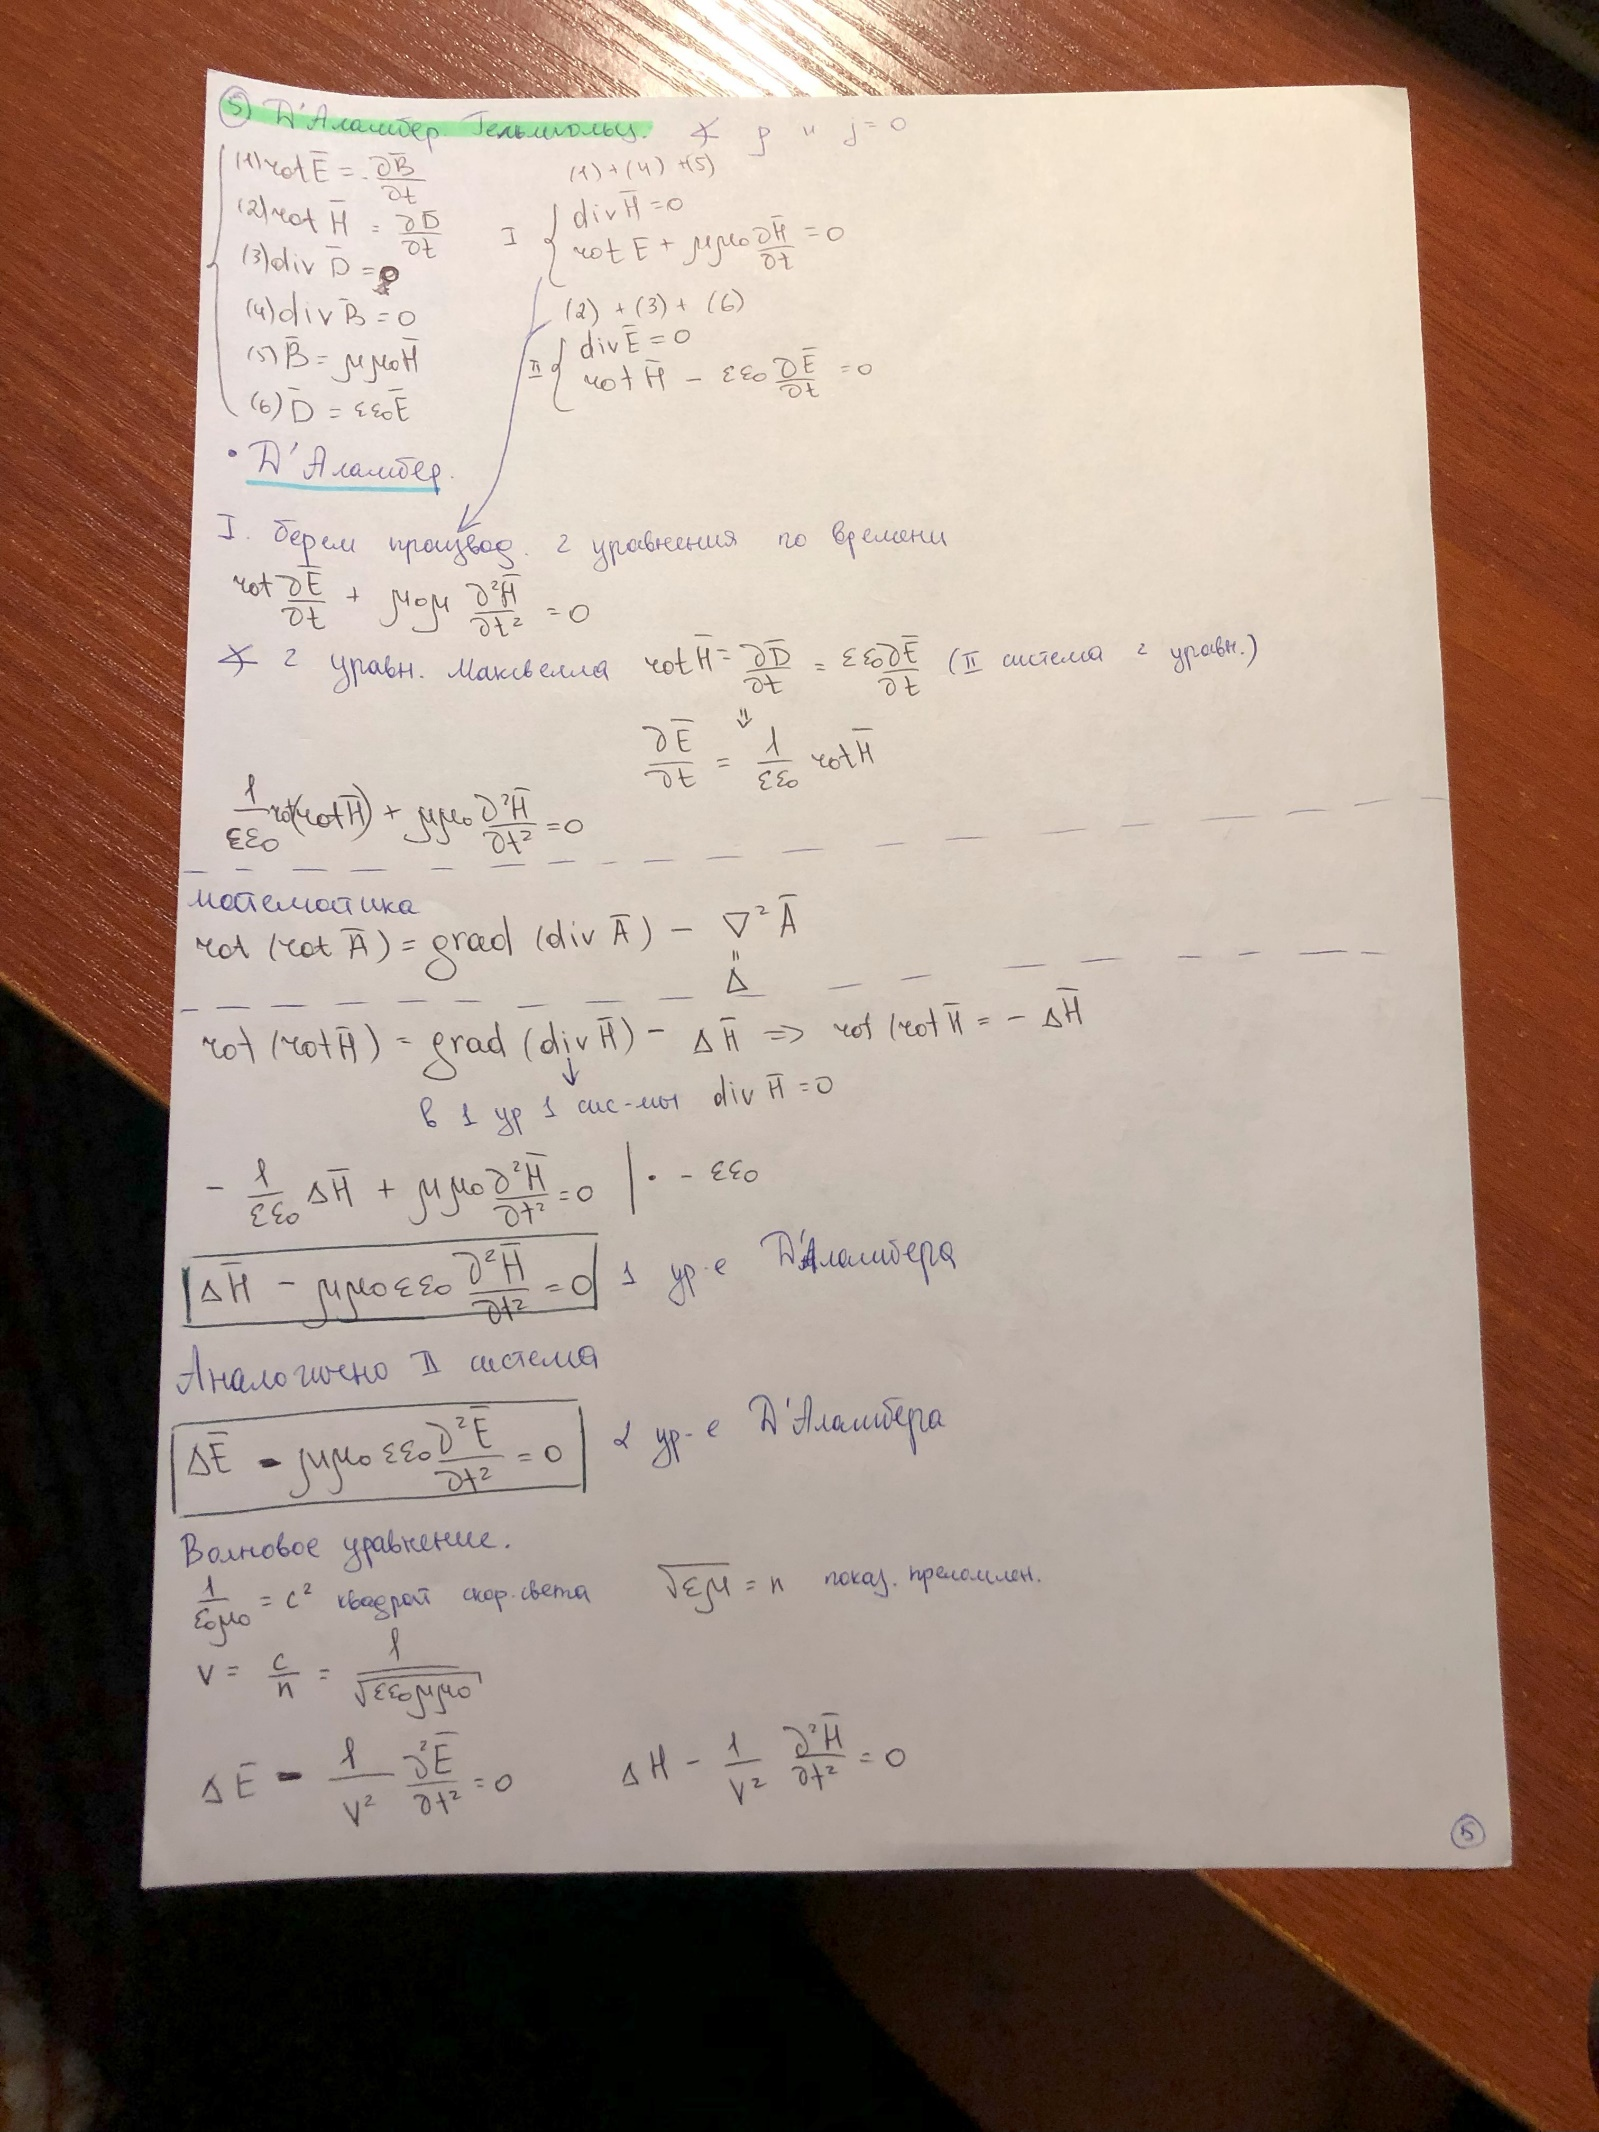 5) Д'Аламбер Гельмгольц. ∢ ρ и j = 0
(1) rot E̅ = - ∂B̅/∂t
(2) rot H̅ = ∂D̅/∂t
(3) div D̅ = 0
(4) div B̅ = 0
(5) B̅ = μμ₀H̅
(6) D̅ = εε₀E̅
(1) + (4) + (5)
I { div H̅ = 0
rot E + μμ₀ ∂H̅/∂t = 0
(2) + (3) + (6)
II { div E̅ = 0
rot H̅ - εε₀ ∂E̅/∂t = 0
• Д'Аламбер.
I. берем производ. 2 уравнения по времени
rot ∂E̅/∂t + μ₀μ ∂²H̅/∂t² = 0
∢ 2 уравн. Максвелла rot H̅ = ∂D̅/∂t = εε₀ ∂E̅/∂t (II система 2 уравн.)
⇓
∂E̅/∂t = 1/εε₀ rot H̅
1/εε₀ rot(rot H̅) + μμ₀ ∂²H̅/∂t² = 0
математика
rot (rot A̅) = grad (div A̅) - ∇² A̅
=
Δ
rot (rot H̅) = grad (div H̅) - ΔH̅ => rot (rot H̅ = - ΔH̅
↓
в 1 ур 1 сис-мы div H̅ = 0
- 1/εε₀ ΔH̅ + μμ₀ ∂²H̅/∂t² = 0 | · - εε₀
ΔH̅ - μμ₀εε₀ ∂²H̅/∂t² = 0 1 ур-е Д'Аламбера
Аналогично II система
ΔE̅ - μμ₀εε₀ ∂²E̅/∂t² = 0 2 ур-е Д'Аламбера
Волновое уравнение.
1/ε₀μ₀ = c² квадрат скор. света √εμ = n показ. преломлен.
v = c/n = 1/√εε₀μμ₀
ΔE̅ - 1/v² ∂²E̅/∂t² = 0 ΔH - 1/v² ∂²H̅/∂t² = 0
5